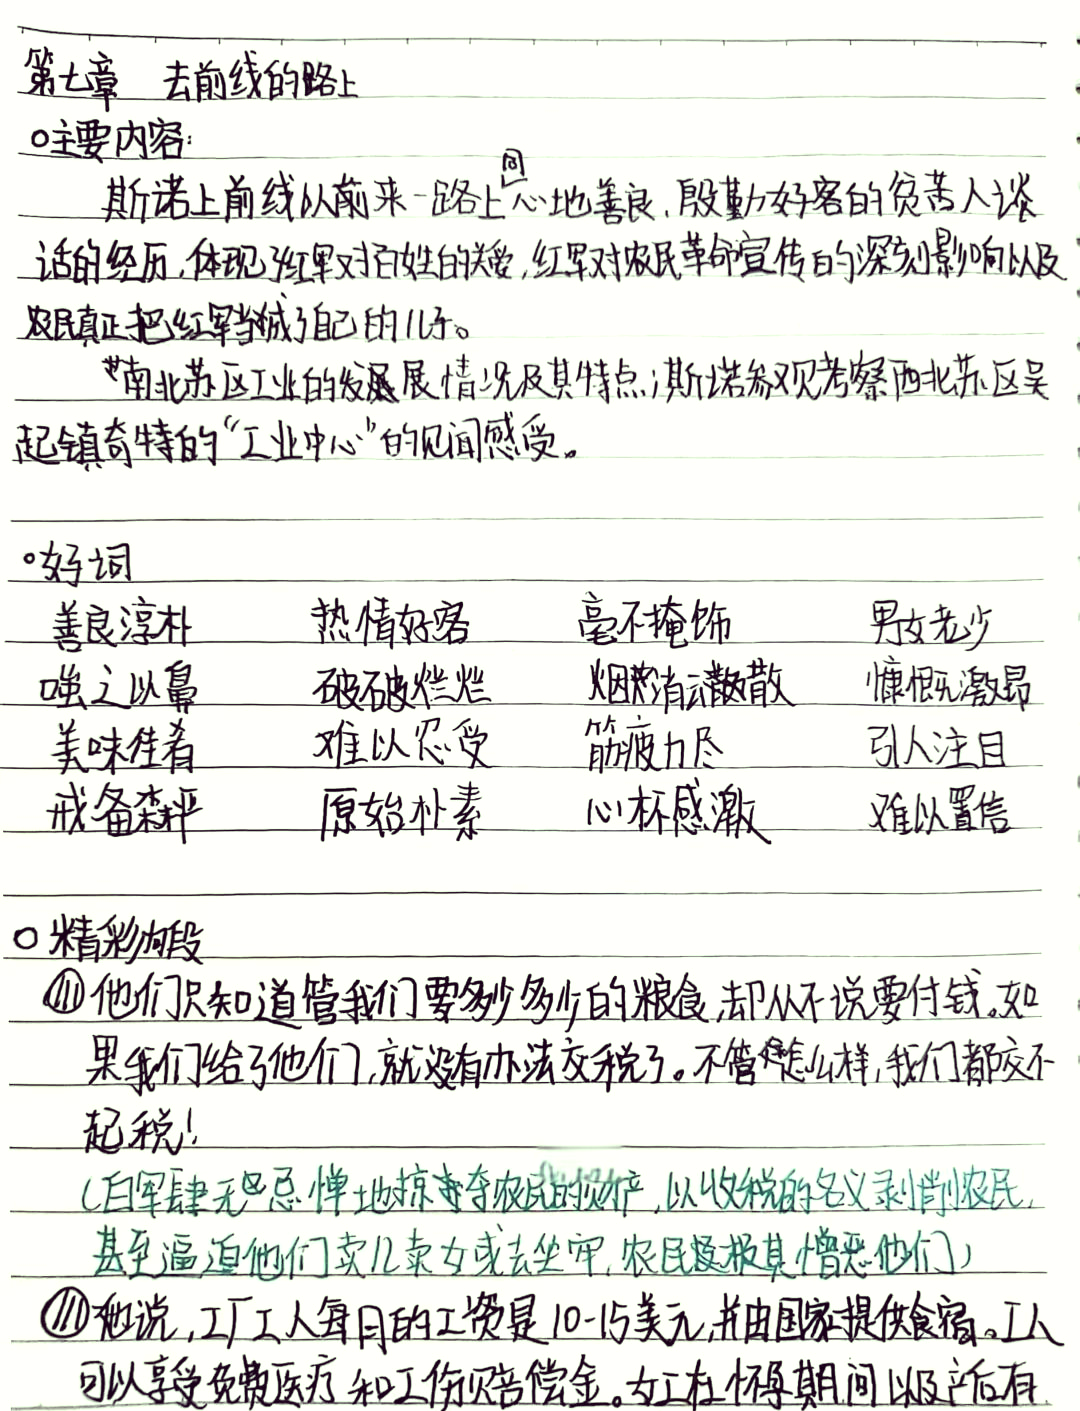 第七章 去前线的路上
主要内容:
斯诺上前线以前来一路上同心地善良、殷勤好客的贫苦人谈
话的经历,体现了红军对百姓的关爱,红军对农民革命宣传的深刻影响以及
农民真正把红军当成了自己的儿子。
南北苏区工业的发展情况及其特点;斯诺参观考察西北苏区吴
起镇奇特的“工业中心”的见闻感受。
好词
善良淳朴 热情好客 毫不掩饰 男女老少
嗤之以鼻 破破烂烂 烟消云散 慷慨激昂
美味佳肴 难以忍受 筋疲力尽 引人注目
戒备森严 原始朴素 心怀感激 难以置信
精彩句段
他们只知道管我们要多少多少的粮食,却从不说要付钱。如
果我们给了他们,就没有办法交税了。不管怎么样,我们都交不
起税!
(白军肆无忌惮地掠夺农民的财产,以收税的名义剥削农民,
甚至逼迫他们卖儿卖女或去坐牢,农民极其憎恶他们)
他说,工厂工人每月的工资是10-15美元,并由国家提供食宿。工人
可以享受免费医疗和工伤赔偿金。女工在怀孕期间以及产后有